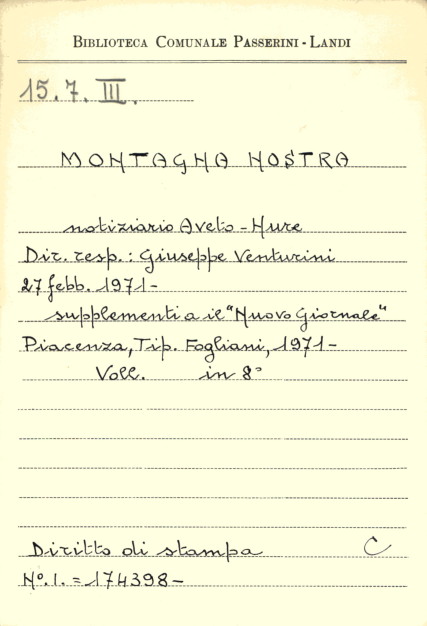 BIBLIOTECA COMUNALE PASSERINI - LANDI
15.7. III.
MONTAGNA NOSTRA
notiziario Aveto - Nure
Dir. resp.: Giuseppe Venturini
27 febb. 1971-
supplementi a il "Nuovo Giornale"
Piacenza, Tip. Fogliani, 1971-
Voll. in 8°
Diritto di stampa C
N°.I. = 174398-